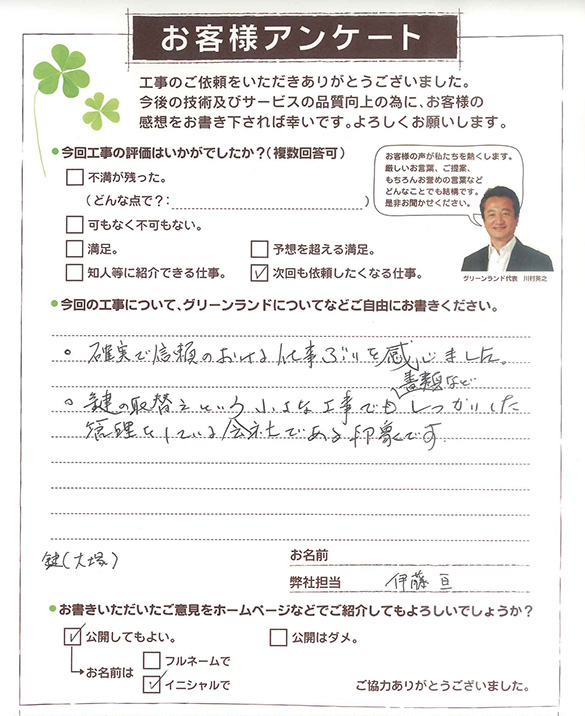 お客様アンケート
工事のご依頼をいただきありがとうございました。
今後の技術及びサービスの品質向上の為に、お客様の
感想をお書き下されば幸いです。よろしくお願いします。
●今回工事の評価はいかがでしたか?(複数回答可)
不満が残った。
(どんな点で?:)
可もなく不可もない。
満足。
予想を超える満足。
知人等に紹介できる仕事。
次回も依頼したくなる仕事。
お客様の声が私たちを熱くします。
厳しいお言葉、ご提案、
もちろんお誉めの言葉など
どんなことでも結構です。
是非お聞かせください。
グリーンランド代表 川村英之
●今回の工事について、グリーンランドについてなどご自由にお書きください。
○確実で信頼のおける仕事ぶりを感じました。
書類など
○鍵の取替えという小さな工事でもしっかりした
管理をしている会社である印象です
鍵(大塚)
お名前
弊社担当 伊藤 亘
●お書きいただいたご意見をホームページなどでご紹介してもよろしいでしょうか?
公開してもよい。
公開はダメ。
お名前は
フルネームで
イニシャルで
ご協力ありがとうございました。